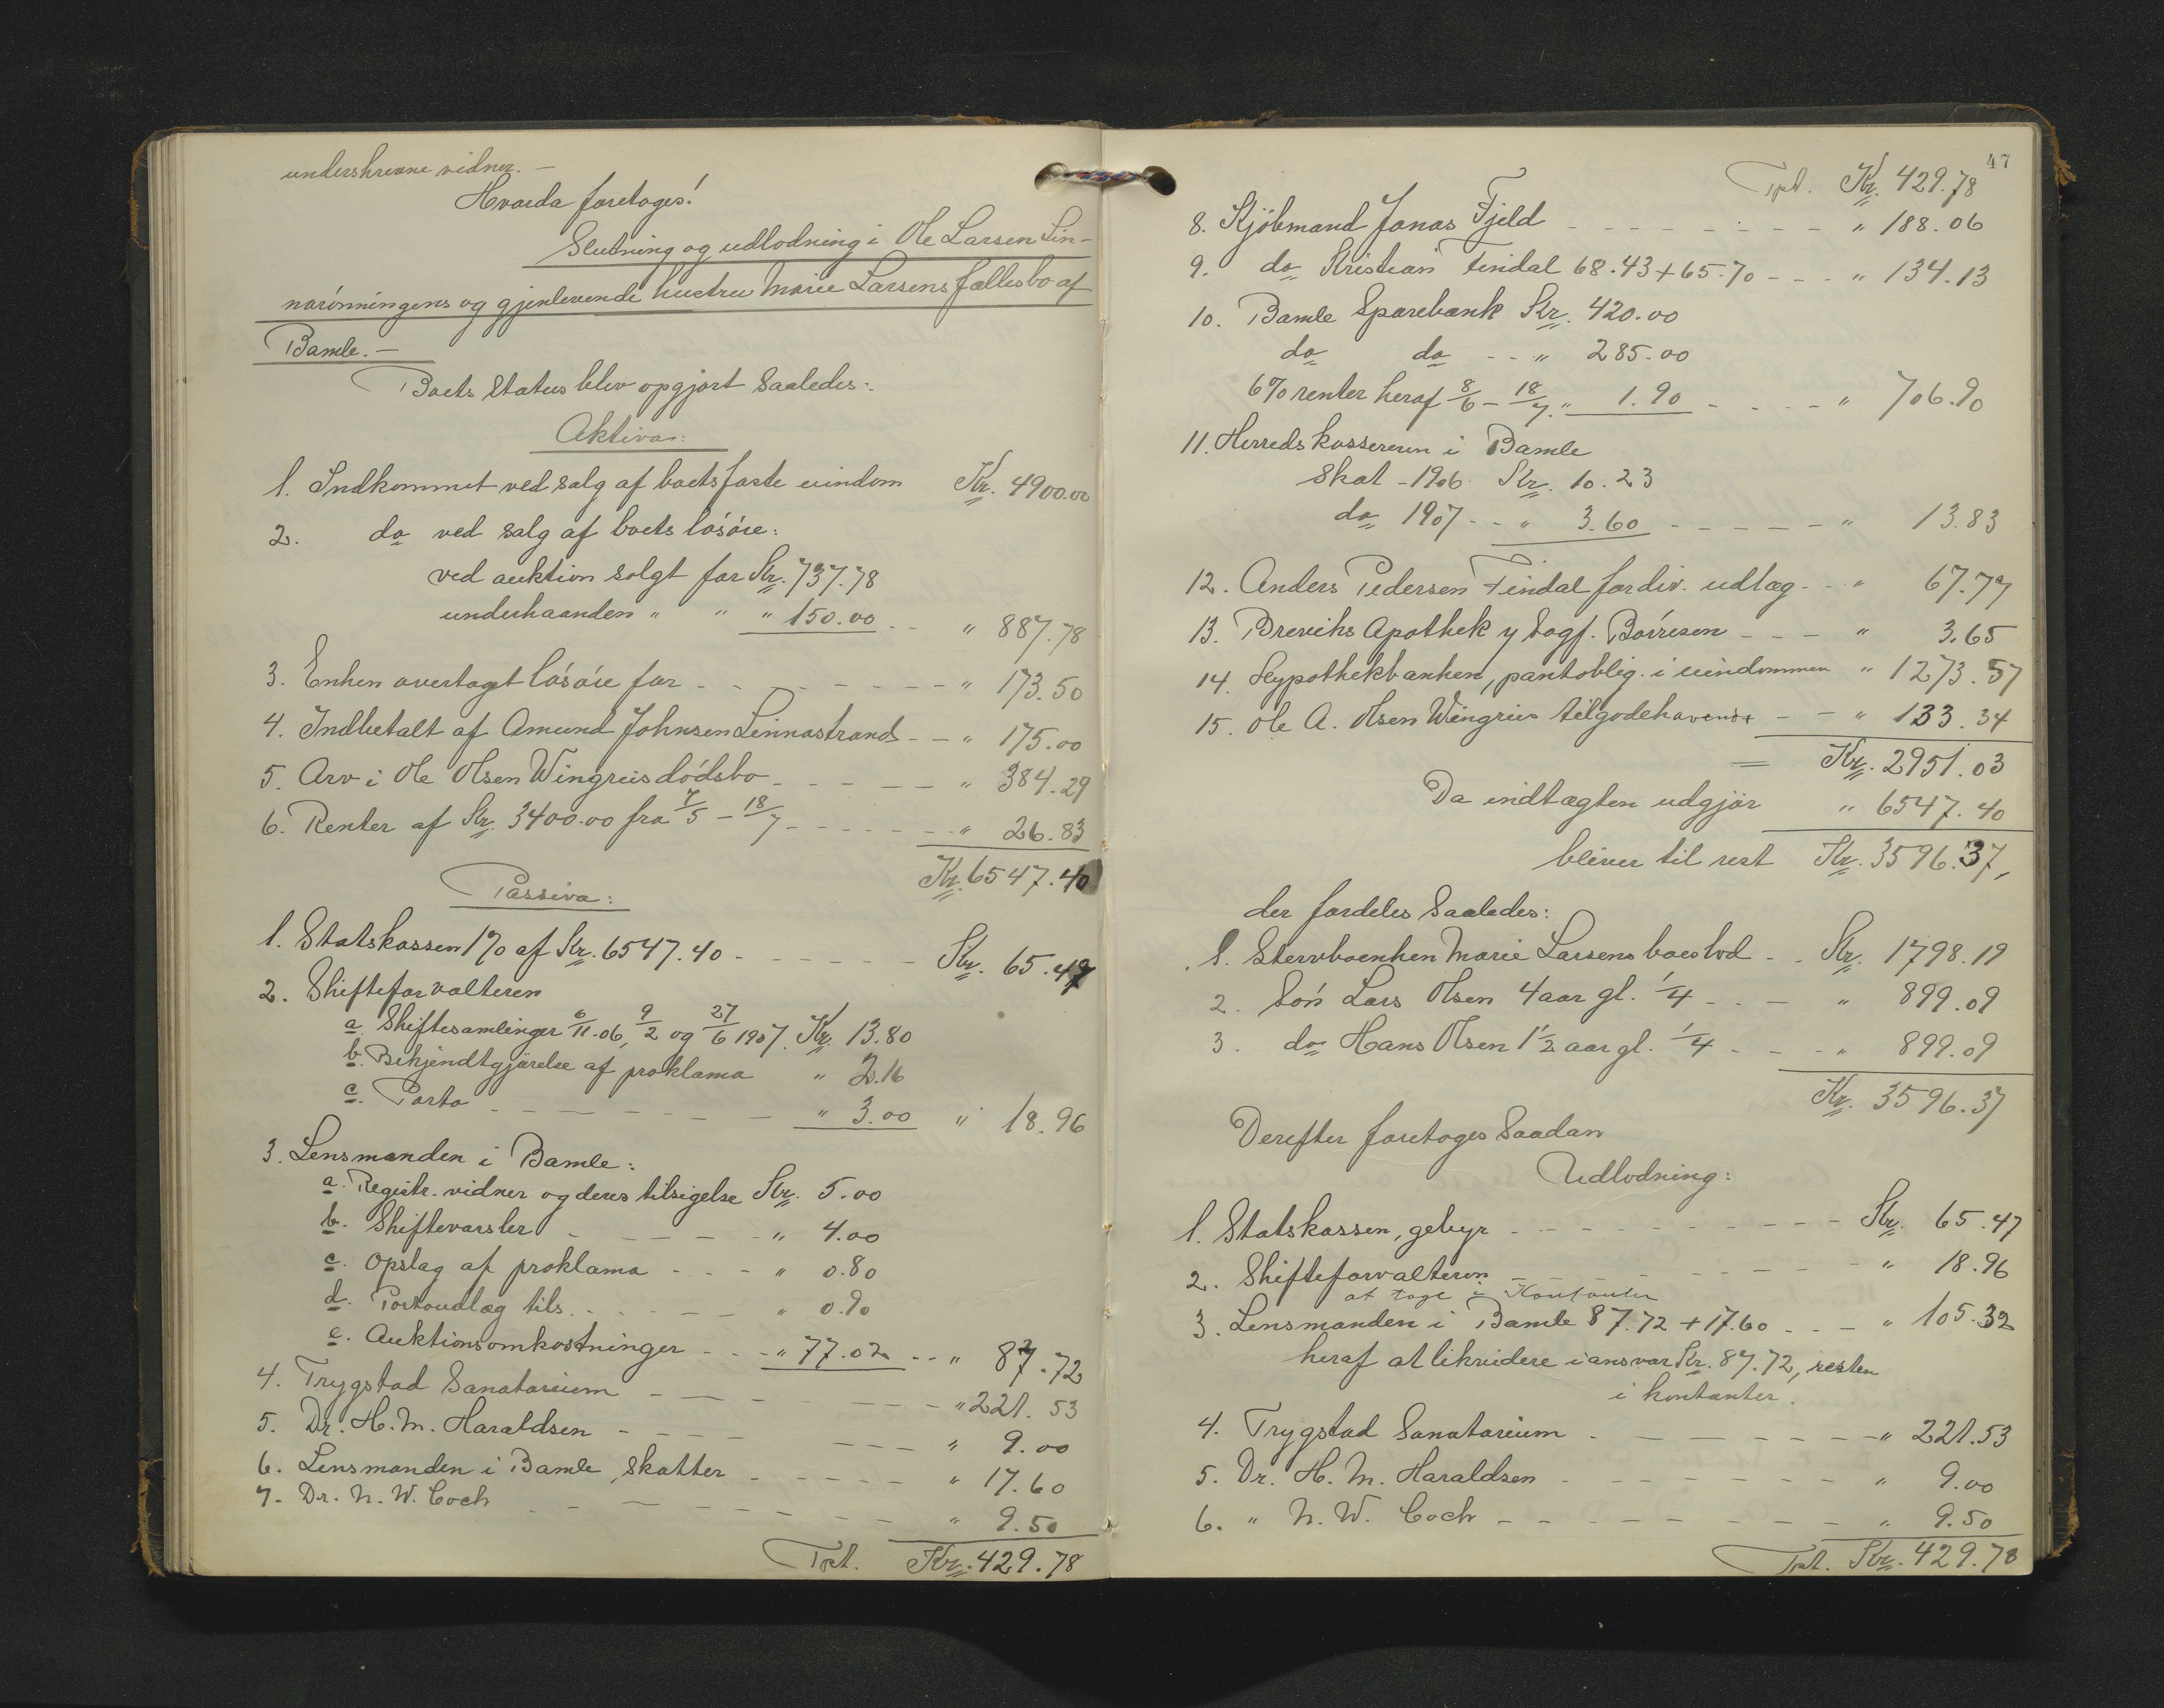 underskrevne vidner. —
Hvorda foretoges!
Slutning og udlodning i Ole Larsen Lin-
narönningens og gjenlevende hustru Marie Larsens fællesbo af
Bamle. —
Boets status blev opgjort saaledes:
Aktiva:
1. Indkommet ved salg af boets faste eiendom Kr. 4900.00
2. do ved salg af boets lösöre:
ved auktion solgt for Kr. 737.78
underhaanden " " " 150.00 - - " 887.78
3. Enken overtaget lösöre for - - - - - - " 173.50
4. Indbetalt af Amund Johnsen Linnastrand - - " 175.00
5. Arv i Ole Olsen Wingreis dödsbo - - - - - " 384.29
6. Renter af Kr. 3400.00 fra 7/5 - 18/7 - - - - - " 26.83
Kr. 6547.40
Passiva:
1. Statskassen 1% af Kr. 6547.40 - - - - - - Kr. 65.47
2. Skifteforvalteren
a. Skiftesamlinger 6/11.06, 9/2 og 27/6 1907. Kr. 13.80
b. Bekjendtgjörelse af proklama " 2.16
c. Porto - - - - - - - " 3.00 " 18.96
3. Lensmanden i Bamle:
a. Registr. vidner og deres tilsigelse Kr. 5.00
b. Skiftevarsler - - - - - " 4.00
c. Opslag af proklama - - - " 0.80
d. Portoudlæg tils. - - - - - " 0.90
e. Auktionsomkostninger - - - " 77.02 - - " 87.72
4. Trygstad Sanatorium - - - - - - - " 221.53
5. Dr. H. M. Haraldsen - - - - - - - " 9.00
6. Lensmanden i Bamle, skatter - - - - - " 17.60
7. Dr. N. W. Coch - - - - - - - " 9.50
Trpt. Kr. 429.78
47
Trpt. Kr. 429.78
8. Kjöbmand Jonas Fjeld - - - - - - - - " 188.06
9. do Kristian Findal 68.43 + 65.70 - - - " 134.13
10. Bamle Sparebank Kr. 420.00
do do - - " 285.00
6% renter heraf 8/6 - 18/7. " 1.90 - - - - " 706.90
11. Herredskassereren i Bamle
Skat - 1906 Kr. 10.23
do 1907 - - " 3.60 - - - - - " 13.83
12. Anders Pedersen Findal for div. udlæg - - " 67.77
13. Breviks Apothek v/ Sagf. Börresen - - - " 3.65
14. Hypothekbanken, pantoblig. i eiendommen " 1273.57
15. Ole A. Olsen Wingreis tilgodehavende - - " 133.34
= Kr. 2951.03
Da indtægten udgjör " 6547.40
bliver til rest Kr. 3596.37,
der fordeles saaledes:
1. Stervboenken Marie Larsens boeslod - - Kr. 1798.19
2. Sön Lars Olsen 4 aar gl. 1/4 - - - " 899.09
3. do Hans Olsen 1 1/2 aar gl. 1/4 - - - - " 899.09
Kr. 3596.37
Derefter foretoges saadan
Udlodning:
1. Statskassen, gebyr - - - - - - - - - Kr. 65.47
2. Skifteforvalteren - - - - - - - " 18.96
at tage i Kontanter
3. Lensmanden i Bamle 87.72 + 17.60 - - - " 105.32
heraf at likvidere i ansvar Kr. 87.72, resten
i kontanter.
4. Trygstad Sanatorium - - - - - - - " 221.53
5. Dr. H. M. Haraldsen - - - - - - - " 9.00
6. " N. W. Coch - - - - - - - - " 9.50
Trpt. Kr. 429.78